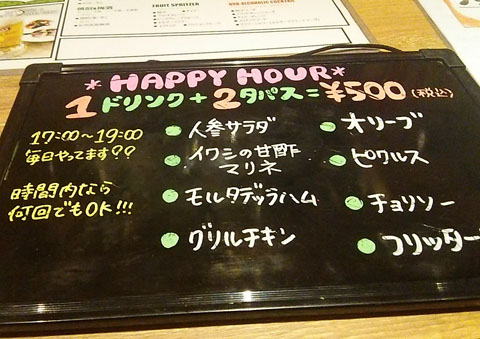 FRUIT SPRITZER
NON-ALCOHOLIC COCKTAIL
*HAPPY HOUR*
1ドリンク+2タパス=¥500(税込)
17:00~19:00
毎日やってます??
時間内なら
何回でもOK!!!
人参サラダ
イワシの甘酢
マリネ
モルタデッラハム
グリルチキン
オリーブ
ピクルス
チョリソー
フリッター